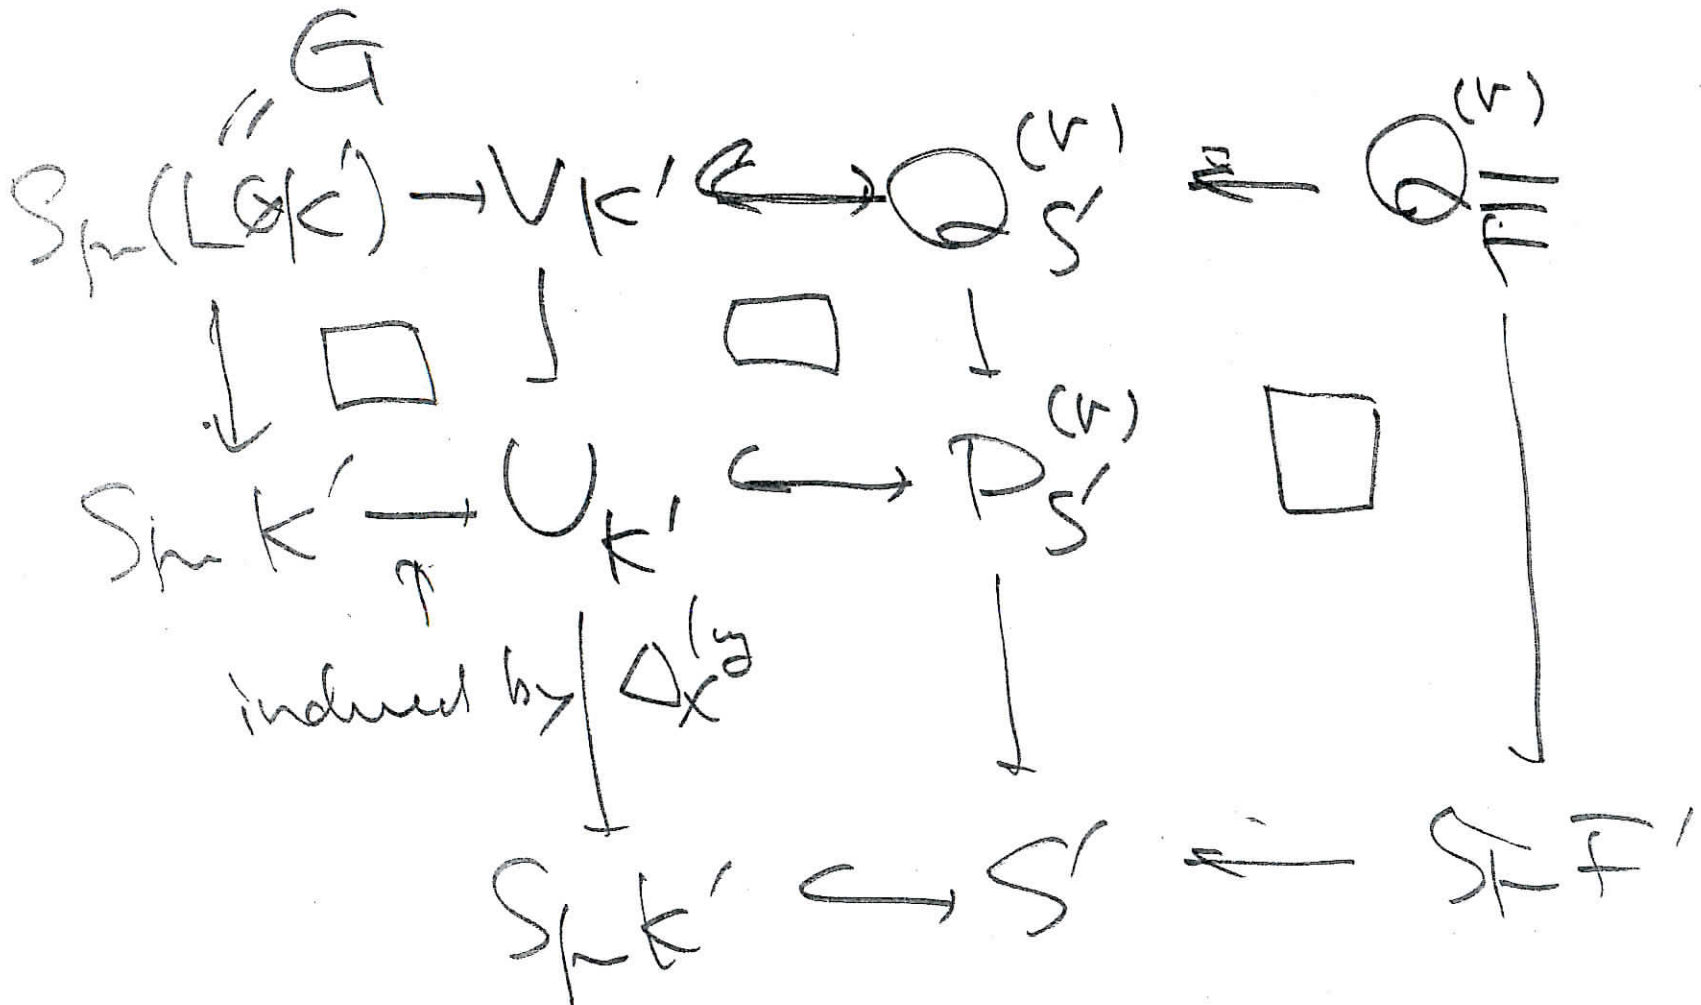 G
Spec(L⊗K') → V_K' ↪ Q_S'^(r) ← Q_F̄^(r)
Spec K' → U_K' ↪ P_S'^(r)
induced by Δ_X^log
Spec K' ↪ S' ← Spec F̄'